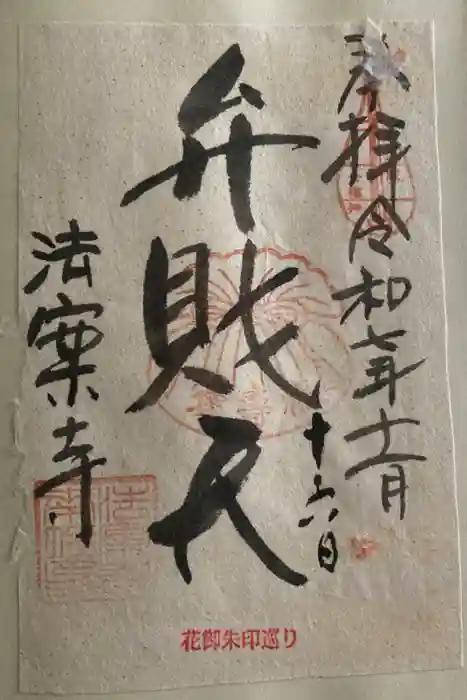 奉拝 令和七年十二月
十六日
弁財天
法案寺
花御朱印巡り